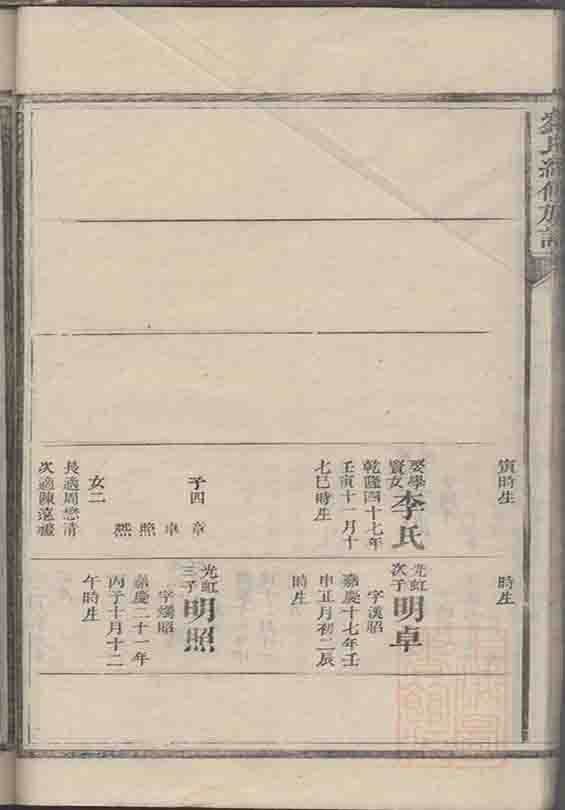 氏續修族譜
寅時生
娶學
賢女
李氏
乾隆四十七年
壬寅十一月十
七巳時生
子四
章
卓
照
燕
女二
長適周懋清
次適陳遠
時生
光虹
次子
明卓
字漢昭
嘉慶十七年壬
申正月初二辰
時生
光虹
三子
明照
字燭昭
嘉慶二十一年
丙子十月十二
午時生